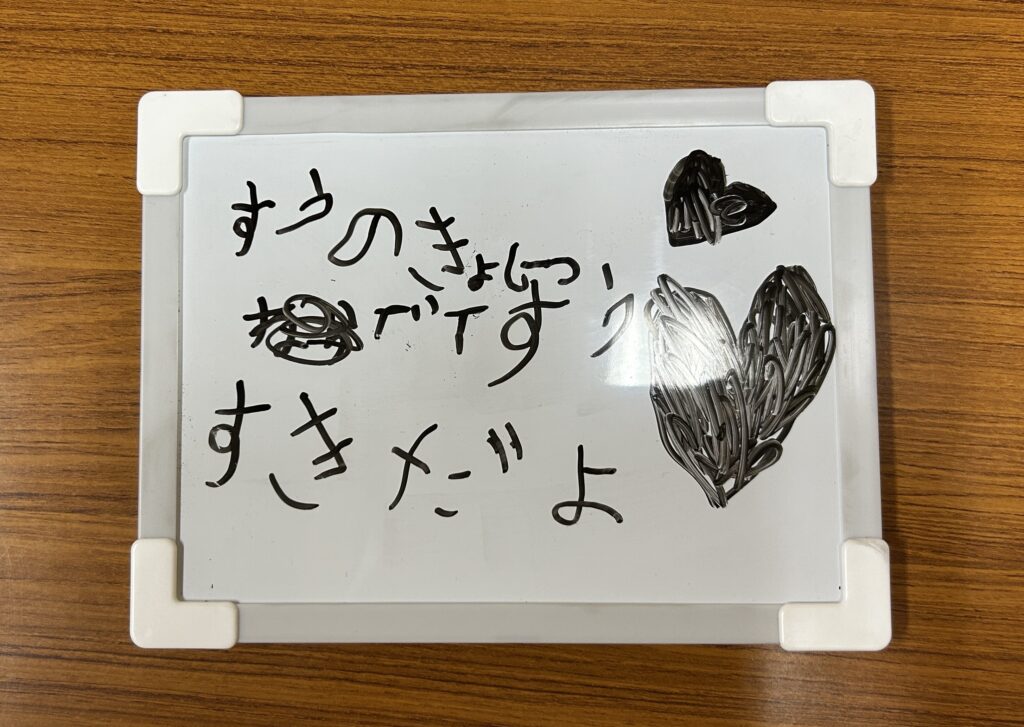 すうのきょしつ
です
すきだよ